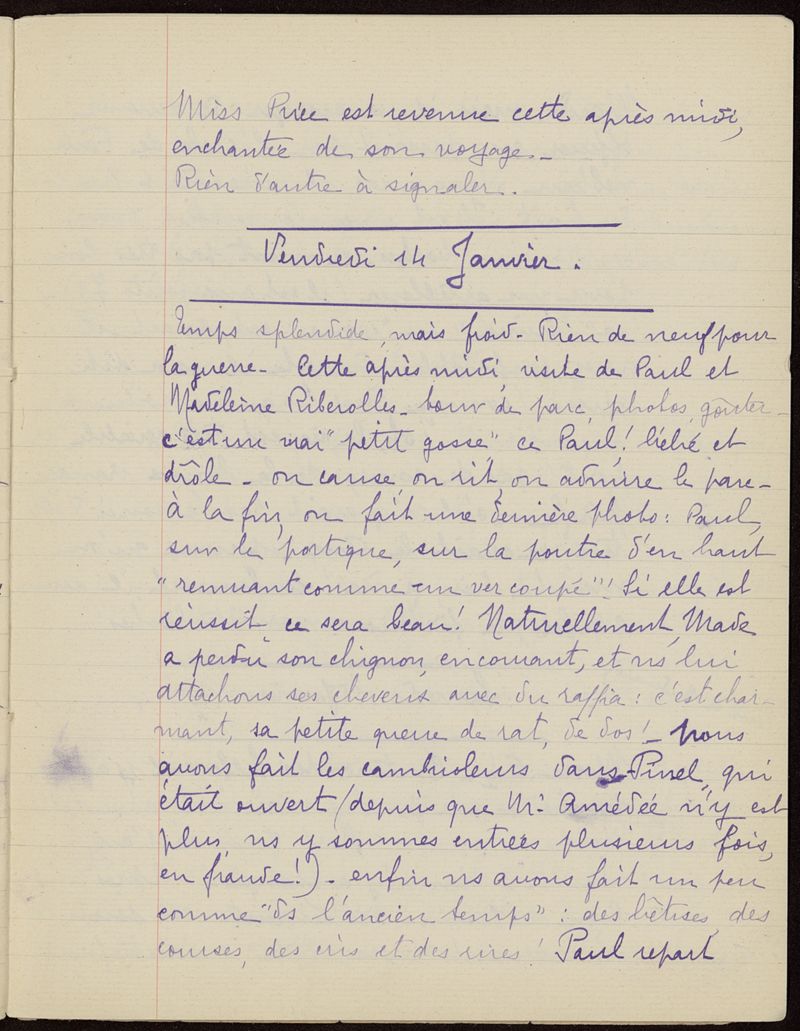 Miss Price est revenue cette après midi,
enchantée de son voyage_
Rien d'autre à signaler..
Vendredi 14 Janvier.
Temps splendide, mais froid_ Rien de neuf pour
la guerre_ Cette après midi, visite de Paul et
Madeleine Riberolles_ tour de parc, photos, goûter_
c'est un vrai "petit gosse", ce Paul! bébé et
drôle_ on cause, on rit, on admire le parc_
à la fin, on fait une dernière photo: Paul,
sur le portique, sur la poutre d'en haut
"remuant comme un ver coupé"! Si elle est
réussit ce sera beau! Naturellement, Made
a perdu son chignon, en courant, et ns lui
attachons ses cheveux avec du raffia: c'est char-
mant, sa petite queue de rat, de dos!_ Nous
avons fait les cambrioleurs dans Pinel, qui
était ouvert (depuis que Mr. Amédée n'y est
plus, ns y sommes entrées plusieurs fois,
en fraude!)_ enfin ns avons fait un peu
comme "ds l'ancien temps": des bêtises, des
courses, des cris et des rires! Paul repart